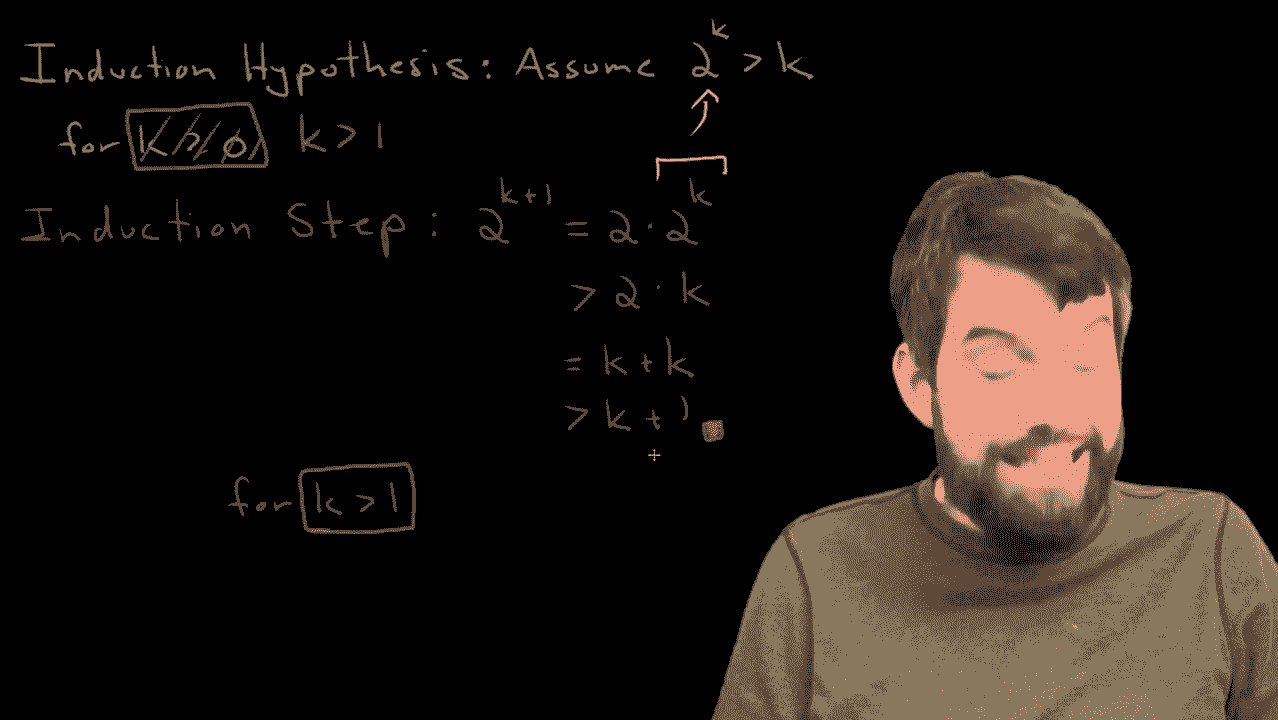 Induction Hypothesis: Assume 2^k > k
for k > 1
Induction Step: 2^(k+1) = 2·2^k
> 2·k
= k + k
> k + 1
for k > 1